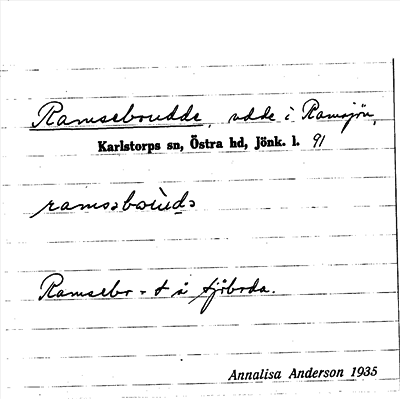 Ramseboudde, udde i Ramsjön,
Karlstorps sn, Östra hd, Jönk. l. 91
Ramsebo - t å sjöboda.
Annalisa Anderson 1935